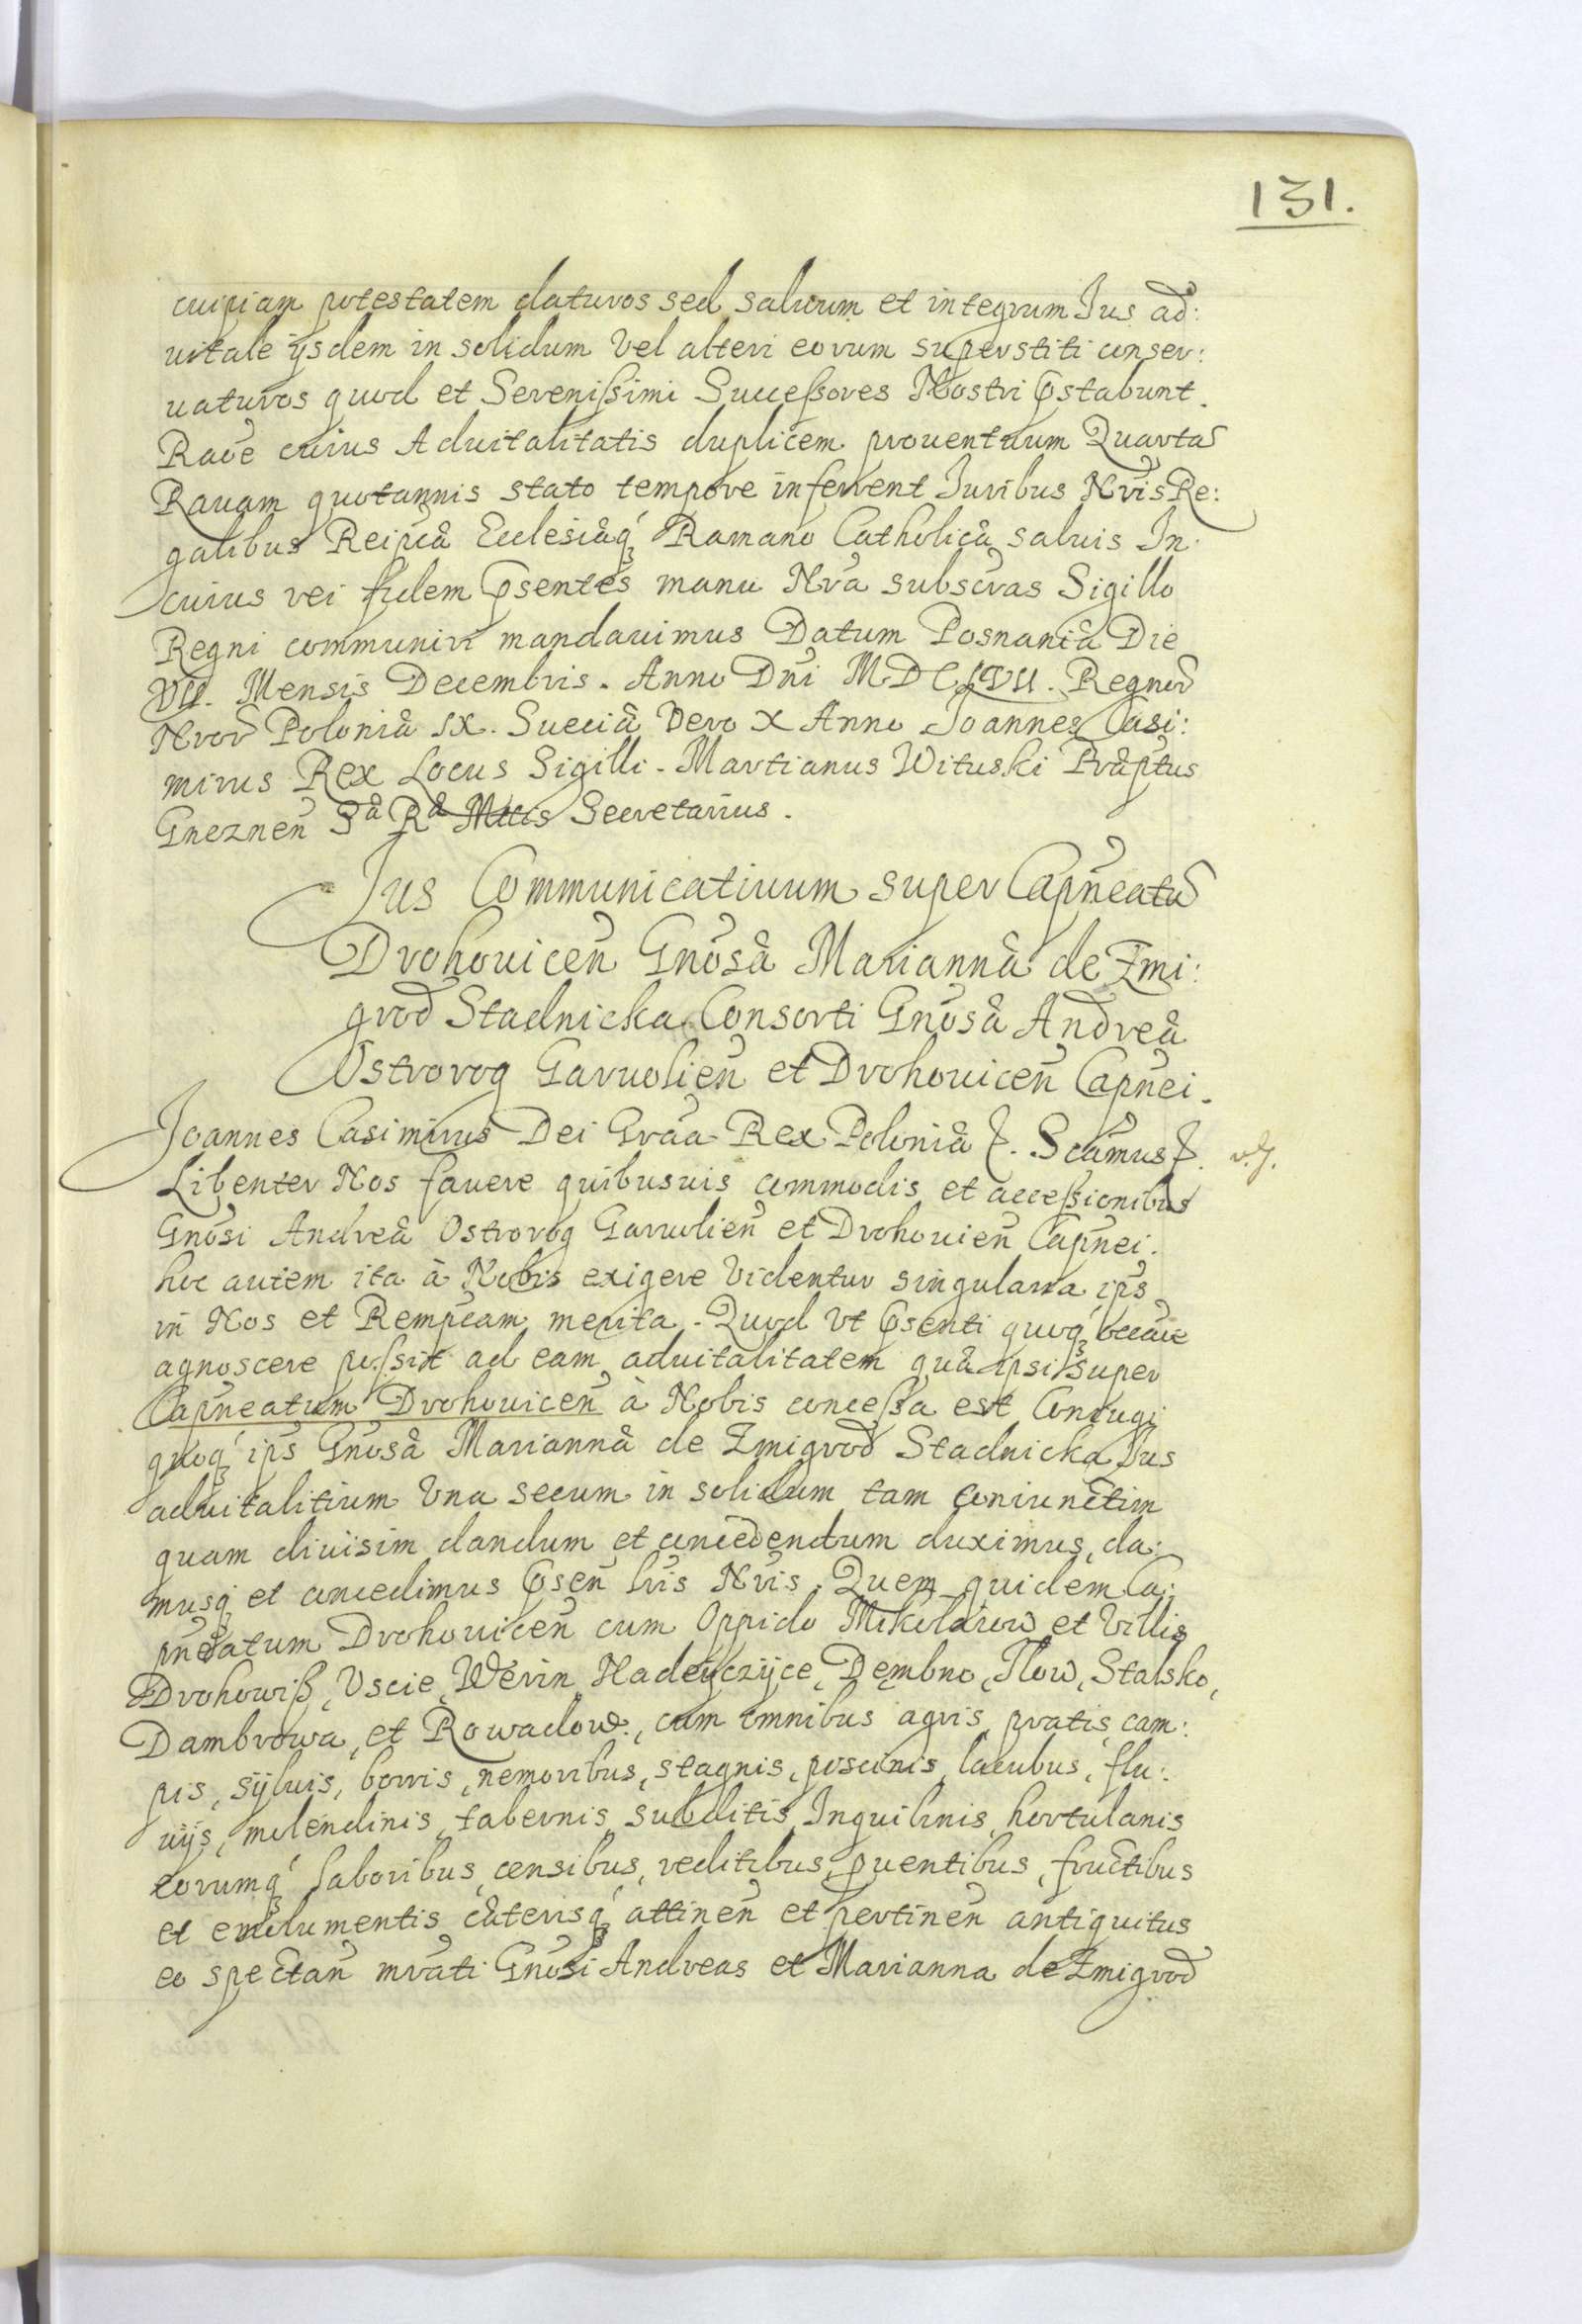 131.
cuipiam potestatem daturos sed saluum et integrum Jus ad:
uitale ijsdem in solidum vel alteri eorum superstiti conser:
uaturos quod et Serenißimi Succeßores Nostri pstabunt.
Raoe cuius Aduitalitatis duplicem prouentuum Quartas
Rauam quotannis stato tempore inferrent Juribus Nris Re:
galibus Reipcæ Ecclesiæq Ramano Catholicæ saluis In
cuius rei fidem psentes manu Nra subscras Sigillo
Regni communiri mandauimus Datum Posnaniæ Die
VII. Mensis Decembris. Anno Dni MDCLVII. Regnor
Nror Poloniæ IX. Sueciæ Vero X Anno Joannes Casi:
mirus Rex Locus Sigilli. Martianus Wituski Præptus
Gneznen Sæ Ræ Mttis Secretarius.
Jus Communicatiuum super Capneatu
Drohouicen Gnosæ Mariannæ de Zmi:
grod Stadnicka Consorti Gnosæ Andreæ
Ostrorog Garuolien et Drohouicen Capnei.
Joannes Casimirus Dei Graa Rex Poloniæ &. Scamus &. v.g.
Libenter Nos fauere quibusuis commodis et acceßionibus
Gnosi Andreæ Ostrorog Garuolien et Drohouien Capnei.
hoc autem ita à Nobis exigere videntur singularia ips
in Nos et Rempcam merita. Quod vt psenti quoq occaue
agnoscere poßit ad eam aduitalitatem quæ ipsi super
Capneatum Drohouicen à Nobis conceßa est Coniugi
quoq ips Gnosæ Mariannæ de Zmigrod Stadnicka Jus
aduitalitium Vna secum in solidum tam coniunctim
quam diuisim dandum et concedendum duximus, da:
musq et concedimus psen lris Nris. Quem quidem Ca:
pneatum Drohouicen cum Oppido Mikolaiow et Villis
Drohowiß, Vscie, Werin, Nadeyczyce, Dembno, Ilow, Stalsko,
Dambrowa, et Rowadow, cum omnibus agris, pratis, cam:
pis, syluis, borris, nemoribus, stagnis, piscinis, lacubus, flu:
uijs, molendinis, tabernis, subditis, Inquilinis, hortulanis
eorumq laboribus, censibus, reditibus, puentibus, fructibus
et emolumentis cæterisq attinen et pertinen antiquitus
eo spectan mrati Gnosi Andreas et Marianna de Zmigrod